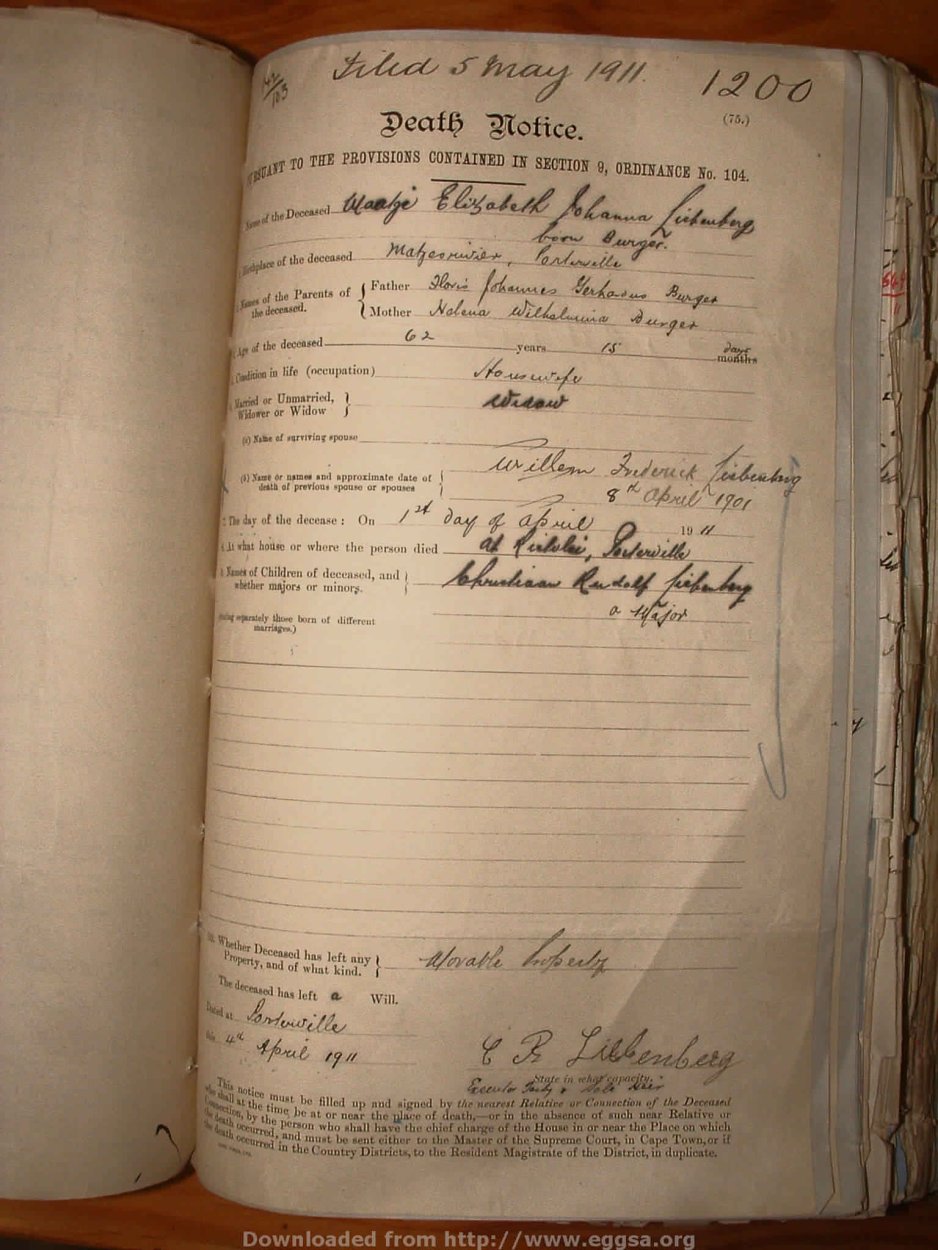 Filed 5 May 1911. 1200
(75.)
Death Notice.
PURSUANT TO THE PROVISIONS CONTAINED IN SECTION 9, ORDINANCE No. 104.
Name of the Deceased Elizabeth Johanna Liebenberg
born Burger.
Birthplace of the deceased Porterville
Names of the Parents of the deceased. Father Floris Johannes Gerhardus Burger
Mother Helena Wilhelmina Burger
Age of the deceased 62 years 15 days
months
Condition in life (occupation) Housewife
Married or Unmarried, Widower or Widow Widow
(a) Name of surviving spouse
(b) Name or names and approximate date of death of previous spouse or spouses Willem Frederick Liebenberg
8th April 1901
7. The day of the decease: On 1st day of April 1911
At what house or where the person died at Porterville
Names of Children of deceased, and whether majors or minors. Christiaan Rudolf Liebenberg
a Major
separately those born of different
marriages.)
10. Whether Deceased has left any Property, and of what kind. Movable Property
The deceased has left a Will.
Dated at Porterville
this 4th April 1911
C R Liebenberg
State in what capacity.
Executor Testy & Sole Heir
This notice must be filled up and signed by the nearest Relative or Connection of the Deceased
who shall at the time be at or near the place of death,—or in the absence of such near Relative or
Connection, by the person who shall have the chief charge of the House in or near the Place on which
the death occurred, and must be sent either to the Master of the Supreme Court, in Cape Town, or if
the death occurred in the Country Districts, to the Resident Magistrate of the District, in duplicate.
Downloaded from http://www.eggsa.org